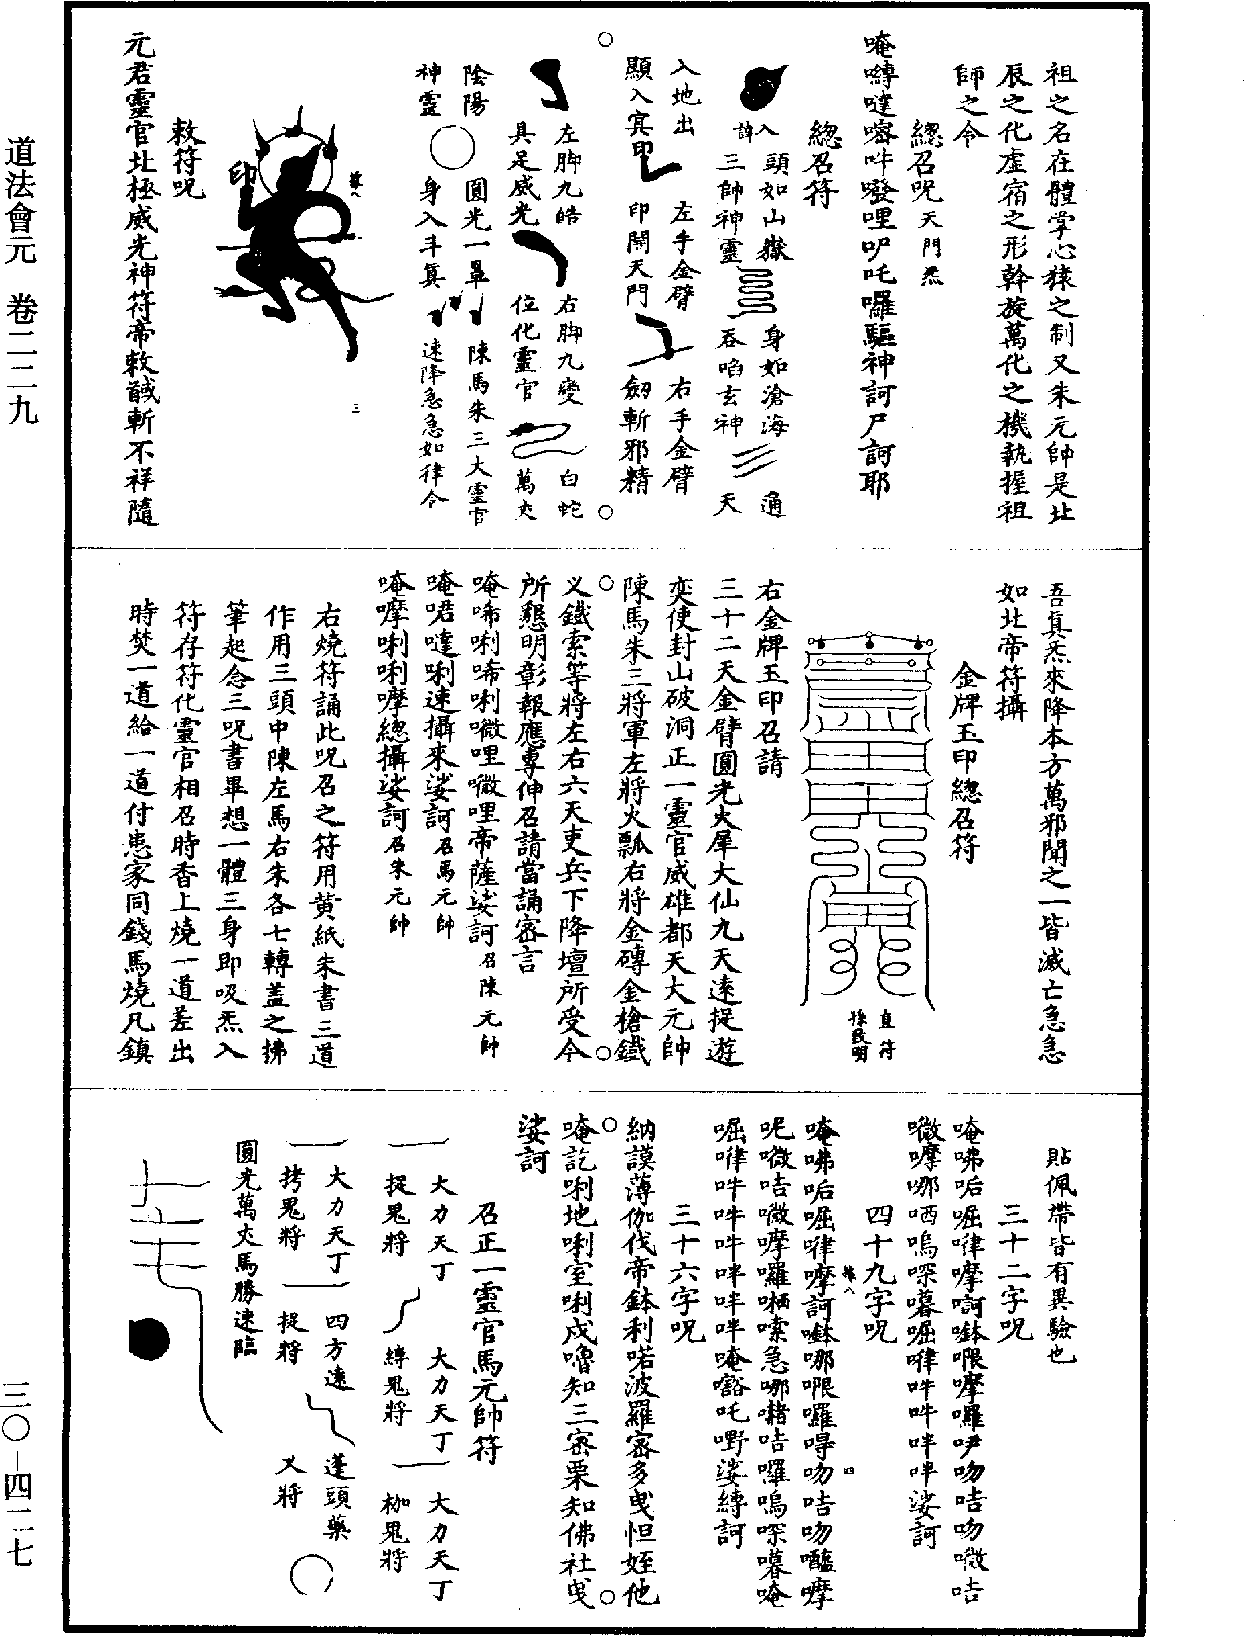 道法會元　卷二二九
三〇－四二七
祖之名在體掌心猿之制又朱元帥是北
辰之化虛宿之形幹旋萬化之機執握祖
師之令
總召呪天門炁
唵嚩噠㗭吽㘔哩𠰷吒囉驅神訶尸訶耶
總召符
入諱
頭如山嶽
三帥神靈
身如滄海
吞啗玄神
通
天
入地出
顯入㝠印
左手金臂
印開天門
右手金臂
劒斬邪精
左脚九皓
具足威光
右脚九變
位化靈官
白蛇
萬火
陰陽
神靈
圓光一罩
身入斗㝠
陳馬朱三大靈官
速降急急如律令
印
三
敕符呪
元君靈官北極威光神符帝敕馘斬不祥隨
吾真炁來降本方萬邪聞之一皆滅亡急急
如北帝符攝
金牌玉印總召符
直符
孫民明
右金牌玉印召請
三十二天金臂圓光火犀大仙九天遠捉遊
奕使封山破洞正一靈官威雄都天大元帥
陳馬朱三將軍左將火瓢右將金磚金槍鐵
义鐵索等將左右六天吏兵下降壇所受今
所懇明彰報應專伸召請當誦密言
唵唏唎唏唎㗲哩㗲哩帝薩娑訶召陳元帥
唵喏噠唎速攝來娑訶召馬元帥
唵嚤唎唎嚤總攝娑訶召朱元帥
右燒符誦此呪召之符用黄紙朱書三道
作用三頭中陳左馬右朱各七轉蓋之拂
筆起念三呪書畢想一體三身即吸炁入
符存符化靈官相召時香上燒一道差出
時焚一道給一道付患家同錢馬燒凡鎮
貼佩帶皆有異驗也
三十二字呪
唵咈㖃啒嘩嚤訶𠽾哏嚤囉吚吻咭吻㗲咭
㗲嚤哪哂嗚㗭㗳啒嘩吽吽㕩㕩娑訶
四十九字呪
唵咈㖃啒嘩嚤訶𠽾哪哏囉㝶吻咭吻㘊嚤
呢㗲咭㗲嚤囉㗚嗦急哪㗱咭囉嗚㗭㗳唵
啒嘩吽吽吽㕩㕩㕩唵豁吒嘢娑縛訶
三十六字呪
納謨薄伽伐帝鉢利喏波羅密多曵怛姪他
唵訖唎地唎室唎戍嚕知三密栗知佛社曵
娑訶
召正一靈官馬元帥符
大力天丁
捉鬼將
大力天丁
縳鬼將
大力天丁
枷鬼將
大力天丁
拷鬼將
四方遠
捉將
蓬頭藥
义將
圓光萬火馬勝速臨
四